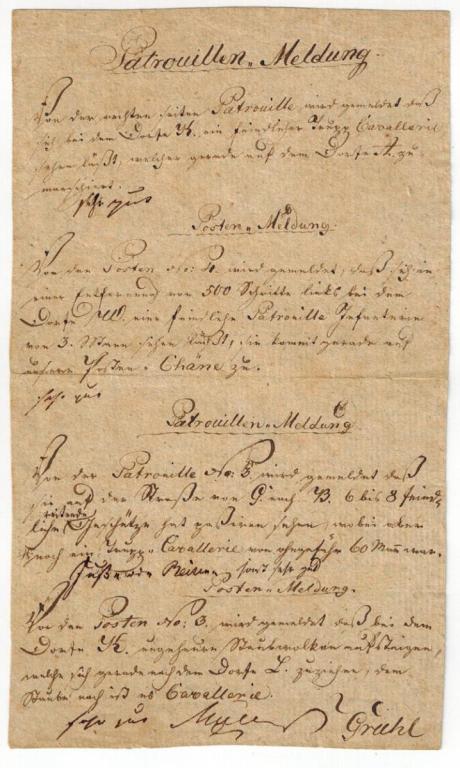 Patrouillen-Meldung.
Von der rechten seiten Patrouille, wird gemeldet daß
sich bei dem Dorfe K. ein feindlicher Trupp Cavallerie
sehen läßt, welcher gerade auf dem Dorfe A. zu
marschiert.
sehr gut
Posten-Meldung.
Von den Posten No: 4. wird gemeldet, daß sich in
einer Entfernung von 500 Schritte links bei dem
Dorfe W. eine feindliche Patrouille Infanterie
von 3. Mann sehen läßt, sie kommt gerade auf
unsere Posten-Chäne zu.
sehr gut
Patrouillen-Meldung
Von der Patrouille No: 3, wird gemeldet daß
sie auf der Straße von G. nach B. 6 bis 8 feind-
reitende
liche Geschütze hat paßieren sehen, wobei aber
noch ein Trupp Cavallerie von ohngefähr 60 Mann war.
sonst sehr gut
Posten-Meldung.
Von den Posten No: 3, wird gemeldet daß bei dem
Dorfe K. ungeheure Staubwolken aufsteigen,
welche sich gerade nach dem Dorfe L. zuziehen, dem
Staube nach ist es Cavallerie.
sehr gut Gruhl